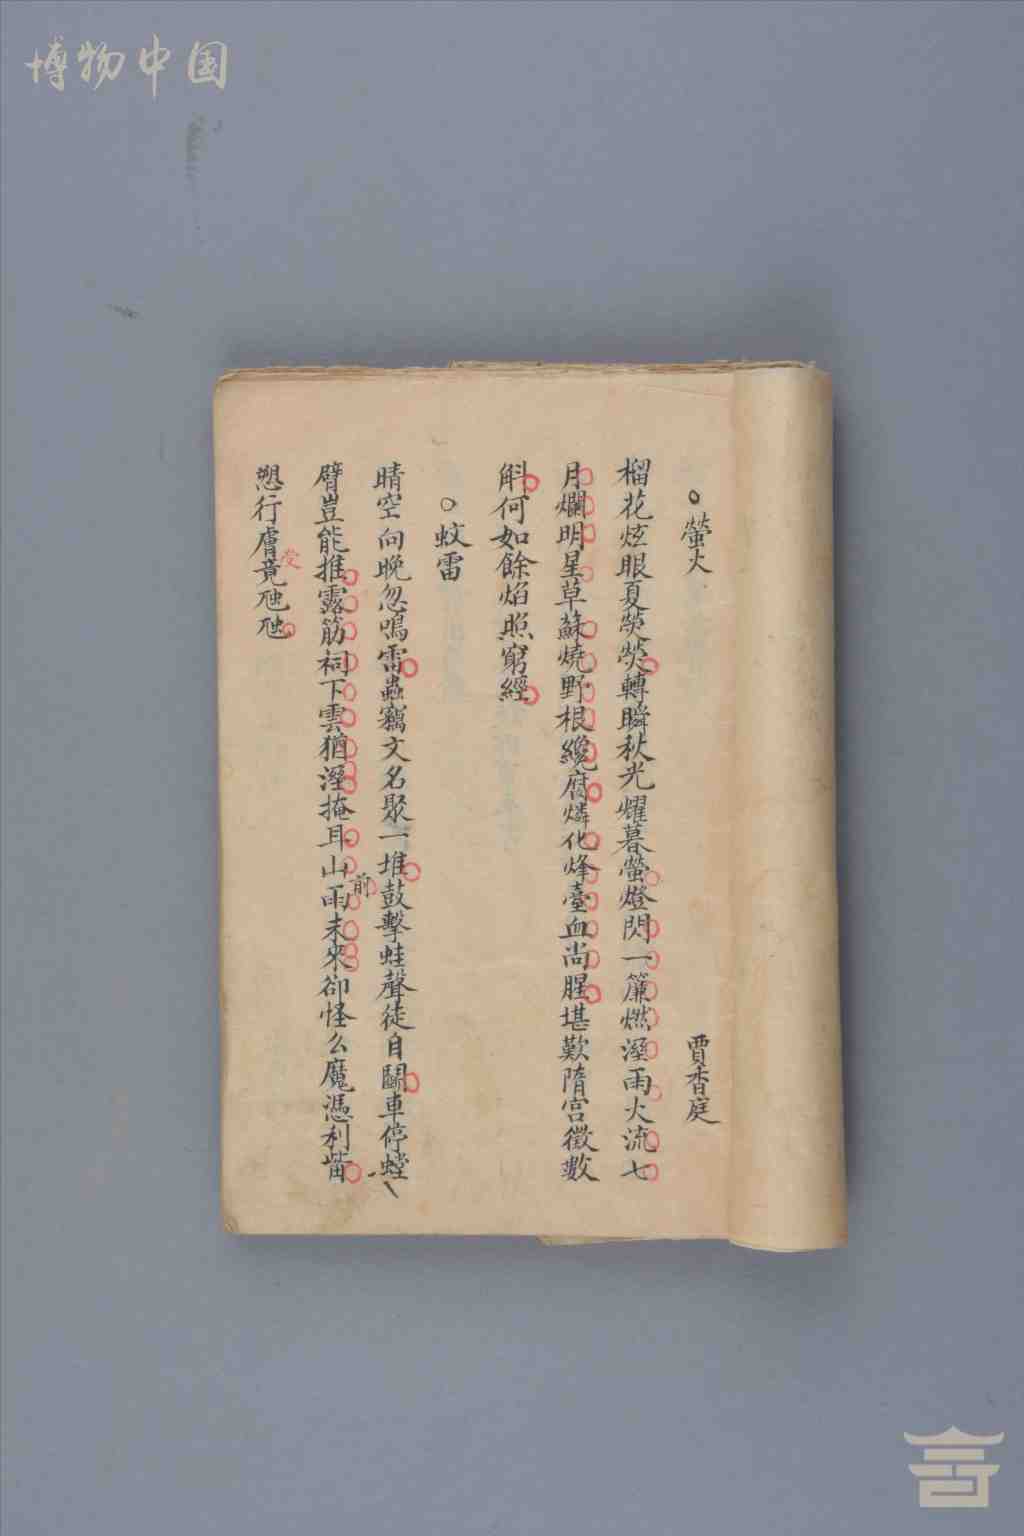 博物中国
○螢火 賈香庭
榴花炫眼夏熒熒轉瞬秋光耀暮螢燈閃一簾燃溼雨火流七
月爛明星草蘇燒野根纔腐燐化烽臺血尚腥堪歎隋宮徵數
斛何如餘焰照窮經
○蚊雷
晴空向晚忽鳴雷蟲竊文名聚一堆鼓擊蛙聲徒自鬧車停螳
臂豈能推露筋祠下雲猶溼掩耳山前雨未來卻怪么魔憑利觜
愬行膚受竟虺虺